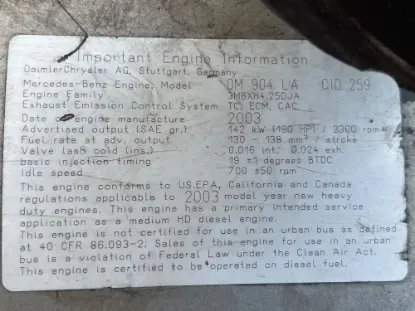 Important Engine Information
DaimlerChrysler AG, Stuttgart, Germany
Mercedes-Benz Engine, Model OM 904 LA CID 259
Engine Family 3MBXH4.25DJA
Exhaust Emission Control System TC, ECM, CAC
Date of engine manufacture 2003
Advertised output (SAE gr.) 142 kW (190 HP) / 2300 rpm
Fuel rate at adv. output 130 - 138 mm³ / stroke
Valve lash cold (ins.) 0.016 int. 0.024 exh.
basic injection timing 19 ±1 degrees BTDC
Idle speed 700 ±50 rpm
This engine conforms to US.EPA, California and Canada
regulations applicable to 2003 model year new heavy
duty engines. This engine has a primary intended service
application as a medium HD diesel engine.
This engine is not certified for use in an urban bus as defined
at 40 CFR 86.093-2. Sales of this engine for use in an urban
bus is a violation of Federal Law under the Clean Air Act.
This engine is certified to be operated on diesel fuel.